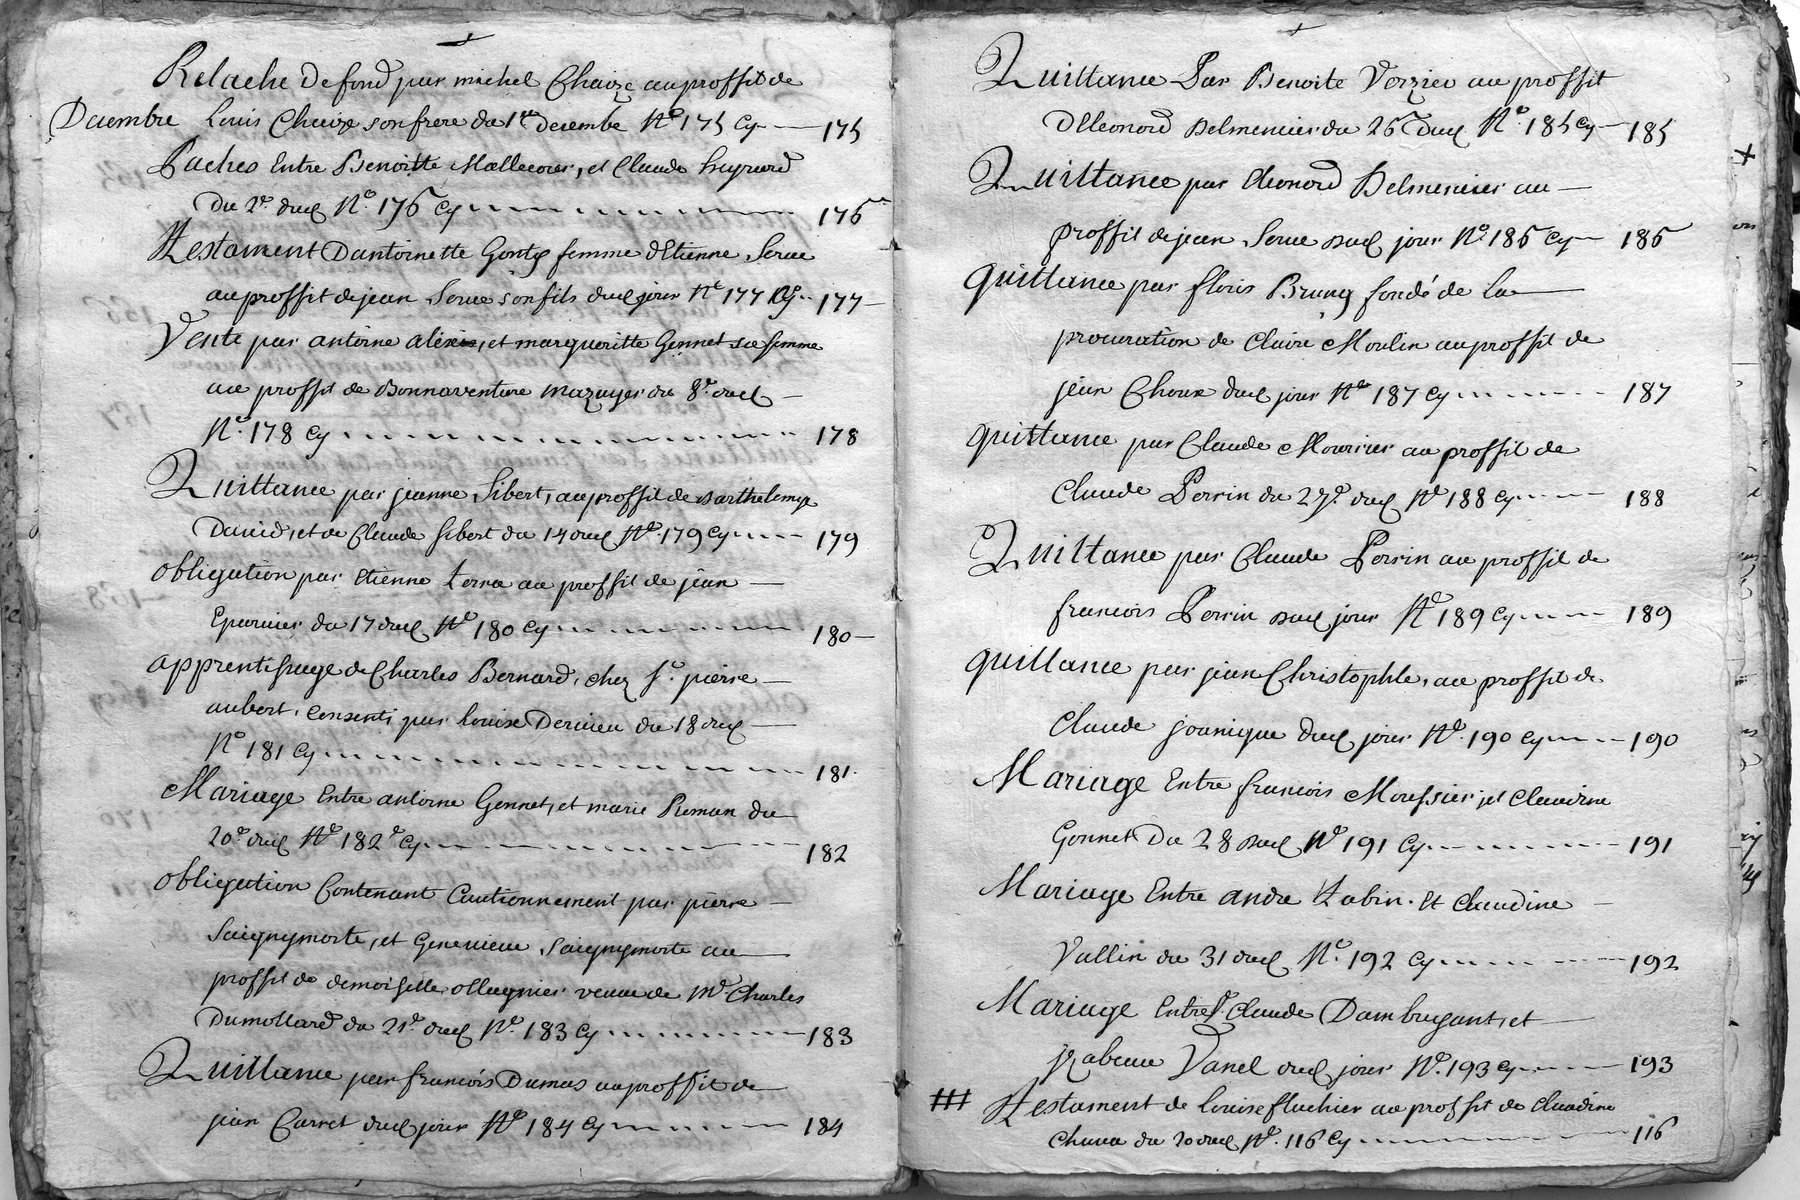 Relache de fond par michel Chaize au proffit de
Decembre Louis Chaize son frere du 1er decembe No 175 Cy 175
Paches Entre Benoitte Mallecour, et Claude
Du 2e dud No. 176 Cy 176
Testament D'antoinette Gonty femme d'Etienne Serue
au proffit de jean Serue son fils dud jour No 177 Cy 177
Vente par antoine, et margueritte Gonnet sa femme
au proffit de Bonnaventure mazuyer du 8e dud
No. 178 Cy 178
Quittance par jeanne Sibert, au proffit de Barthelemy
David, et de Claude Sibert du 14 dud No. 179 Cy 179
Obligation par Etienne au proffit de jean
Eparvier du 17 dud No 180 Cy 180
apprentissage de Charles Bernard, chez Sr. pierre
aubert, consenti par Louise Derieu du 18 dud
No 181 Cy 181.
Mariage Entre antoine Gonnet, et marie Reman du
20e dud No 182e Cy 182
Obligation Contenant Cautionnement par pierre
Saignymorte, et Genevieve Saignymorte au
proffit de demoiselle ollagnier veuve de Me Charles
Dumollard du 21e dud No. 183 Cy 183
Quittance par francois Dumas au proffit de
jean Carret dud jour No 184 Cy 184
Quittance Par Benoite Verzieu au proffit
D'Eleonord Delmenier du 26e dud No. 185 Cy 185
Quittance par Eleonord Delmenier au
proffit de jean Serue dud jour No. 186 Cy 186
quittance par floris Bruny fondé de la
procuration de Claire Moulin au proffit de
jean Choux dud jour No 187 Cy 187
quittance par Claude Mourier au proffit de
Claude Perrin du 27e. dud No 188 Cy 188
Quittance par Claude Perrin au proffit de
francois Perrin dud jour No 189 Cy 189
quittance par jean Christophle, au proffit de
Claude dud jour No. 190 Cy 190
Mariage Entre francois Moussier, et Claudine
Gonnet Du 28 dud No 191 Cy 191
Mariage Entre andre Tabin. Et Claudine
Vallin du 31 dud No. 192 Cy 192
Mariage Entre Sr. Claude Dambugant, et
Izabeau Vanel dud jour No. 193 Cy 193
Testament de Louise fluchier au proffit de Claudine
Chava du 20 dud No. 116 Cy 116